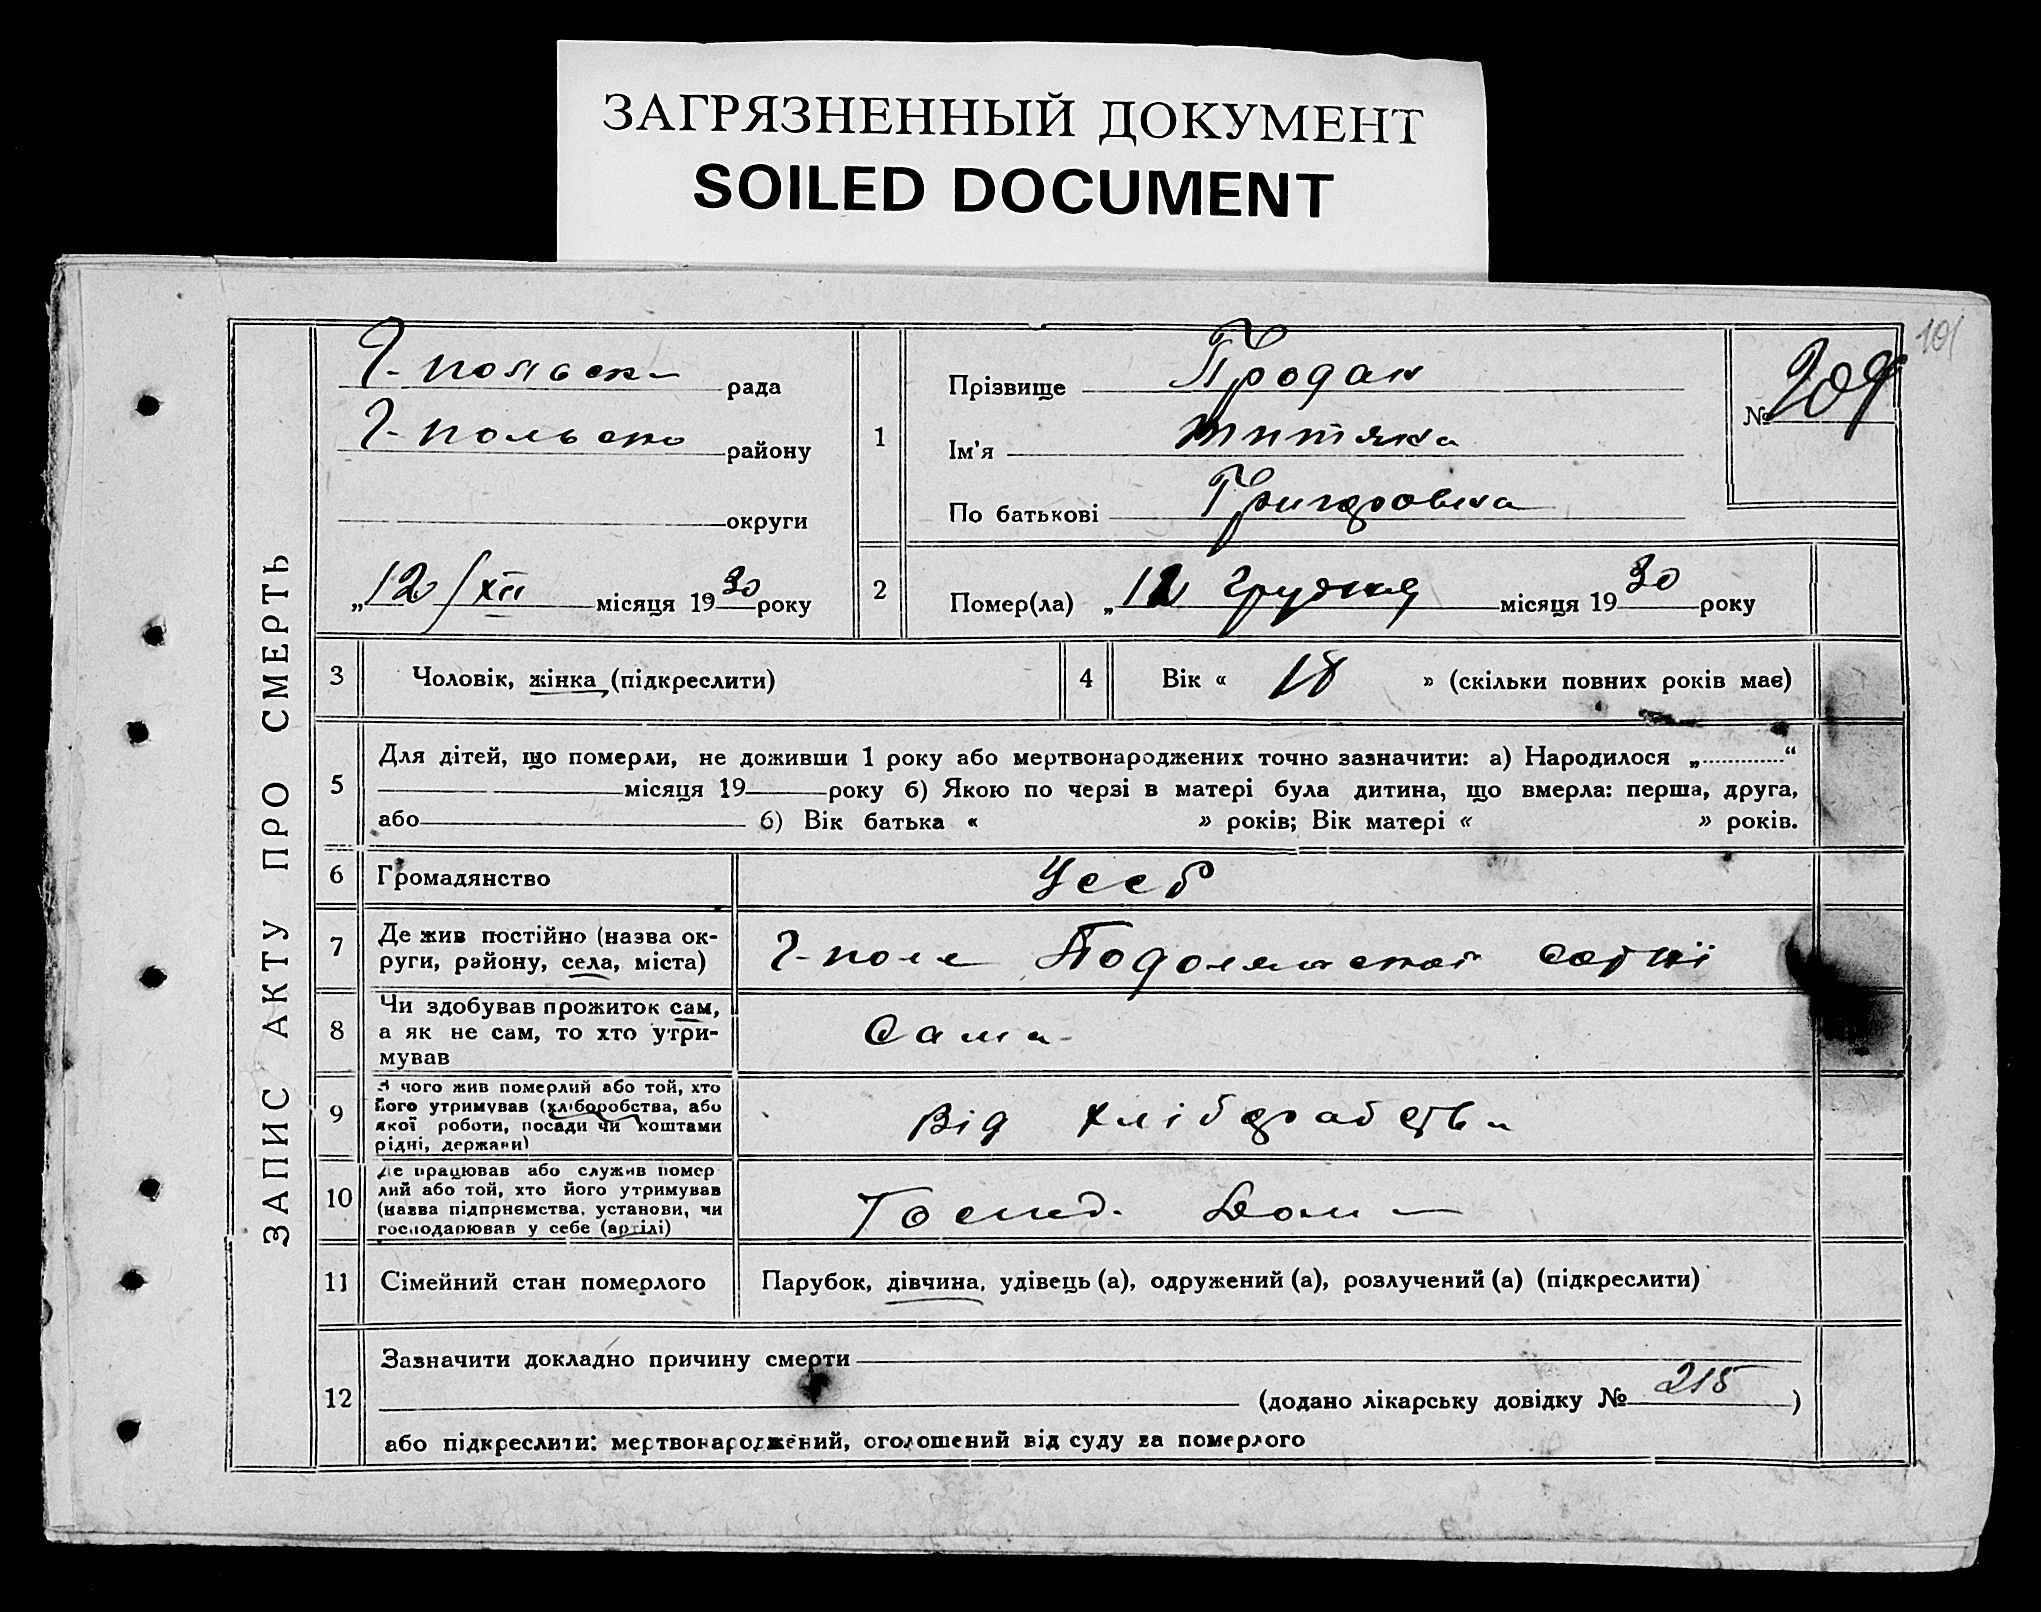 ЗАГРЯЗНЕННЫЙ ДОКУМЕНТ
SOILED DOCUMENT
101
ЗАПИС АКТУ ПРО СМЕРТЬ
Г-польськ рада
Г-польсько району
округи
„12/XII місяця 1930 року
1
Прізвище Продан
Ім'я
По батькові Григоровна
№ 209
2
Помер(ла) „12 Грудня місяця 1930 року
3
Чоловік, жінка (підкреслити)
4
Вік « 18 » (скільки повних років має)
5
Для дітей, що померли, не доживши 1 року або мертвонароджених точно зазначити: а) Народилося „............“
місяця 19 року б) Якою по черзі в матері була дитина, що вмерла: перша, друга,
або б) Вік батька « » років; Вік матері « » років.
6
Громадянство
Усср
7
Де жив постійно (назва ок-
руги, району, села, міста)
Г-поле Подолянської сотні
8
Чи здобував прожиток сам,
а як не сам, то хто утри-
мував
Сама
9
З чого жив померлий або той, хто
його утримував (хліборобства, або
якої роботи, посади чи коштами
рідні, держави)
Від хліборобства
10
Де працював або служив помер
лий або той, хто його утримував
(назва підприємства, установи, чи
господарював у себе (артілі)
Господ. Дома
11
Сімейний стан померлого
Парубок, дівчина, удівець (а), одружений (а), розлучений (а) (підкреслити)
12
Зазначити докладно причину смерти
(додано лікарську довідку № 215 )
або підкреслити: мертвонароджений, оголошений від суду за померлого